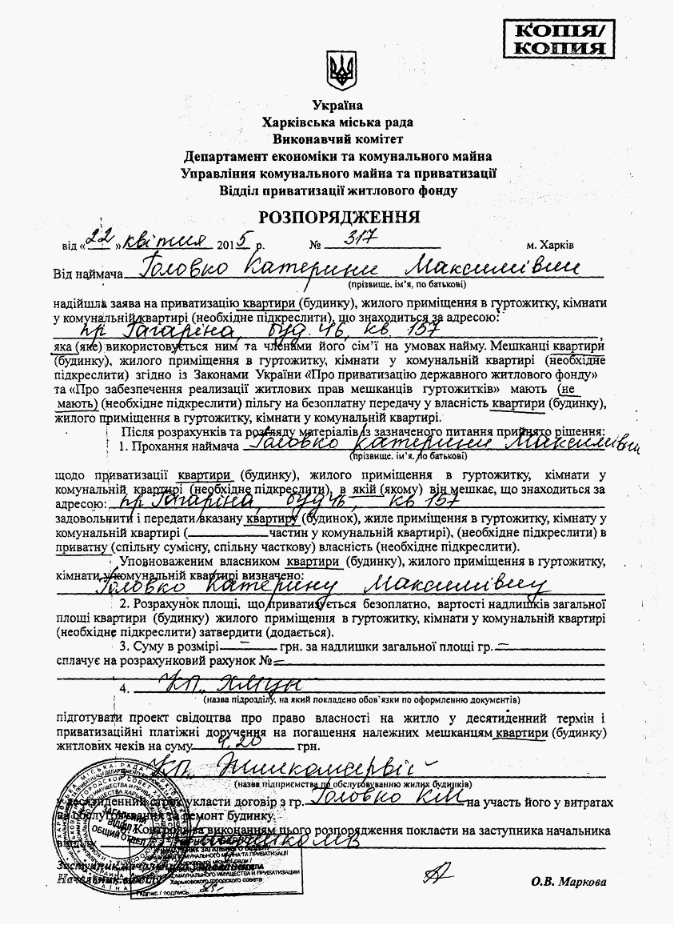 КОПІЯ/
КОПИЯ
Україна
Харківська міська рада
Виконавчий комітет
Департамент економіки та комунального майна
Управління комунального майна та приватизації
Відділ приватизації житлового фонду
РОЗПОРЯДЖЕННЯ
від «22» квітня 2015 р. № 317 м. Харків
Від наймача Головко Катерини Максимівни
(прізвище, ім’я, по батькові)
надійшла заява на приватизацію квартири (будинку), жилого приміщення в гуртожитку, кімнати
у комунальній квартирі (необхідне підкреслити), що знаходиться за адресою:
пр Гагаріна буд. 46, кв 157,
яка (яке) використовується ним та членами його сім’ї на умовах найму. Мешканці квартири
(будинку), жилого приміщення в гуртожитку, кімнати у комунальній квартирі (необхідне
підкреслити) згідно із Законами України «Про приватизацію державного житлового фонду»
та «Про забезпечення реалізації житлових прав мешканців гуртожитків» мають (не
мають) (необхідне підкреслити) пільгу на безоплатну передачу у власність квартири (будинку),
жилого приміщення в гуртожитку, кімнати у комунальній квартирі.
Після розрахунків та розгляду матеріалів із зазначеного питання прийнято рішення:
1. Прохання наймача Головко Катерини Максимівни
(прізвище, ім’я, по батькові)
щодо приватизації квартири (будинку), жилого приміщення в гуртожитку, кімнати у
комунальній квартирі (необхідне підкреслити), в якій (якому) він мешкає, що знаходиться за
адресою: пр Гагаріна, буд 46, кв 157
задовольнити і передати вказану квартиру (будинок), жиле приміщення в гуртожитку, кімнату у
комунальній квартирі ( частин у комунальній квартирі), (необхідне підкреслити) в
приватну (спільну сумісну, спільну часткову) власність (необхідне підкреслити).
Уповноваженим власником квартири (будинку), жилого приміщення в гуртожитку,
кімнати у комунальній квартирі визначено:
Головко Катерину Максимівну
2. Розрахунок площі, що приватизується безоплатно, вартості надлишків загальної
площі квартири (будинку) жилого приміщення в гуртожитку, кімнати у комунальній квартирі
(необхідне підкреслити) затвердити (додається).
3. Суму в розмірі – грн. за надлишки загальної площі гр. –
сплачує на розрахунковий рахунок № –
4. КП
(назва підрозділу, на який покладено обов’язки по оформленню документів)
підготувати проект свідоцтва про право власності на житло у десятиденний термін і
приватизаційні платіжні доручення на погашення належних мешканцям квартири (будинку)
житлових чеків на суму 9,20 грн.
КП Жилкомсервіс
(назва підприємства по обслуговуванню жилих будинків)
у десятиденний строк укласти договір з гр. Головко КМ на участь його у витратах
на обслуговування та ремонт будинку.
Контроль за виконанням цього розпорядження покласти на заступника начальника
ЗАГАЛЬНИЙ
ВІДДІЛ
ОБЩИЙ ОТДЕЛ
Підпис / подпись
О.В. Маркова